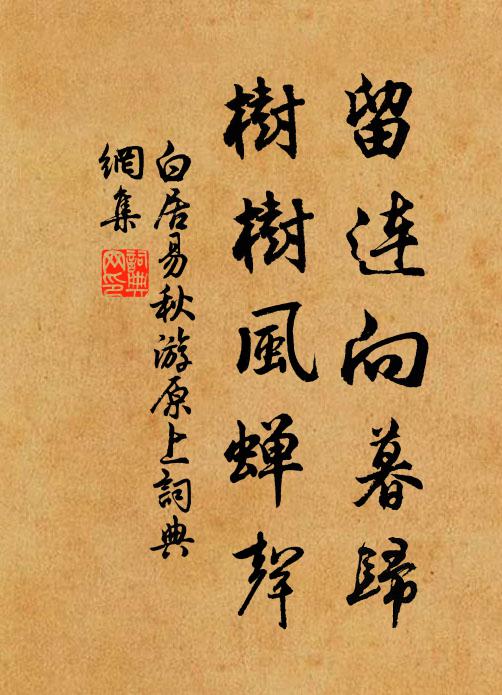 留连向暮歸
樹樹風蝉聲
白居易秋游原上詞典
網集
詞典
网印